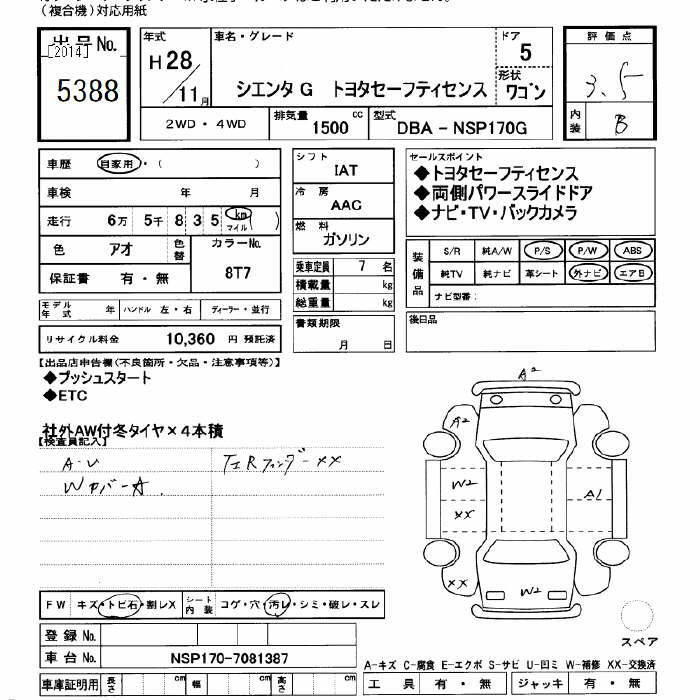 (複合機)対応用紙
出品No. [2014] 5388
年式 H28/11月
車名・グレード シエンタG トヨタセーフティセンス
ドア 5
形状 ワゴン
評価点 3.5
内装 B
2WD・4WD
排気量 1500 cc
型式 DBA - NSP170G
車歴 自家用・( )
車検 年 月
走行 6万 5千 8 3 5 km マイル ( )
色 アオ 色替
カラーNo. 8T7
保証書 有・無
モデル年式 年 ハンドル 左・右 ディーラー・並行
リサイクル料金 10,360 円 預託済
シフト IAT
冷房 AAC
燃料 ガソリン
乗車定員 7 名
積載量 kg
総重量 kg
書類期限 月 日
セールスポイント
◆トヨタセーフティセンス
◆両側パワースライドドア
◆ナビ・TV・バックカメラ
装備品 S/R 純A/W P/S P/W ABS
純TV 純ナビ 革シート 外ナビ エアB
ナビ型番:
後日品
【出品店申告欄(不良箇所・欠品・注意事項等)】
◆プッシュスタート
◆ETC
社外AW付冬タイヤ×4本積
【検査員記入】
A-U
XX
A2
A2
W2
XX
A1
XX
W2
スペア
FW キズ・トビ石・割レX シート内装 コゲ・穴・汚レ・シミ・破レ・スレ
登録No.
車台No. NSP170-7081387
車庫証明用 長さ cm 幅 cm 高さ cm
A-キズ C-腐食 E-エクボ S-サビ U-凹ミ W-補修 XX-交換済
工具 有・無 ジャッキ 有・無